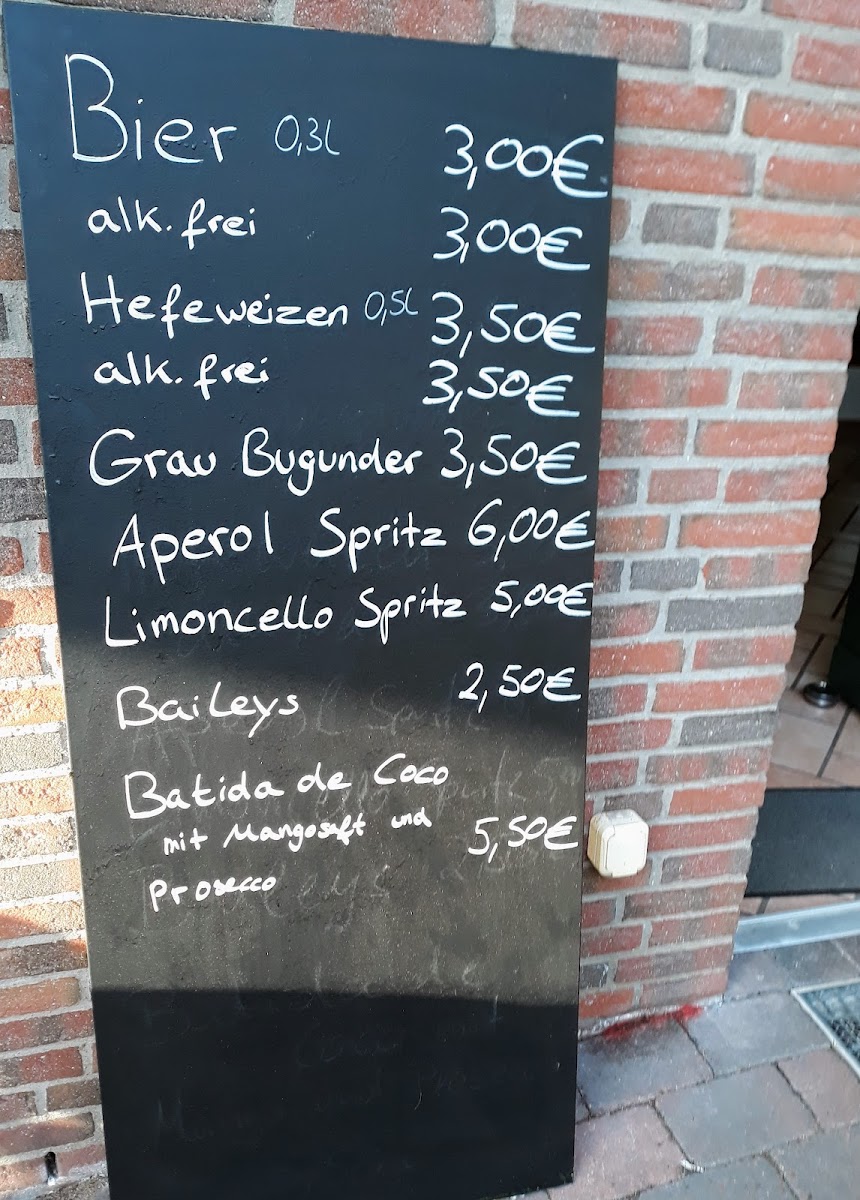 Bier 0,3L 3,00€
alk. frei 3,00€
Hefeweizen 0,5L 3,50€
alk. frei 3,50€
Grau Bugunder 3,50€
Aperol Spritz 6,00€
Limoncello Spritz 5,00€
Baileys 2,50€
Batida de Coco
mit Mangosaft und 5,50€
Prosecco